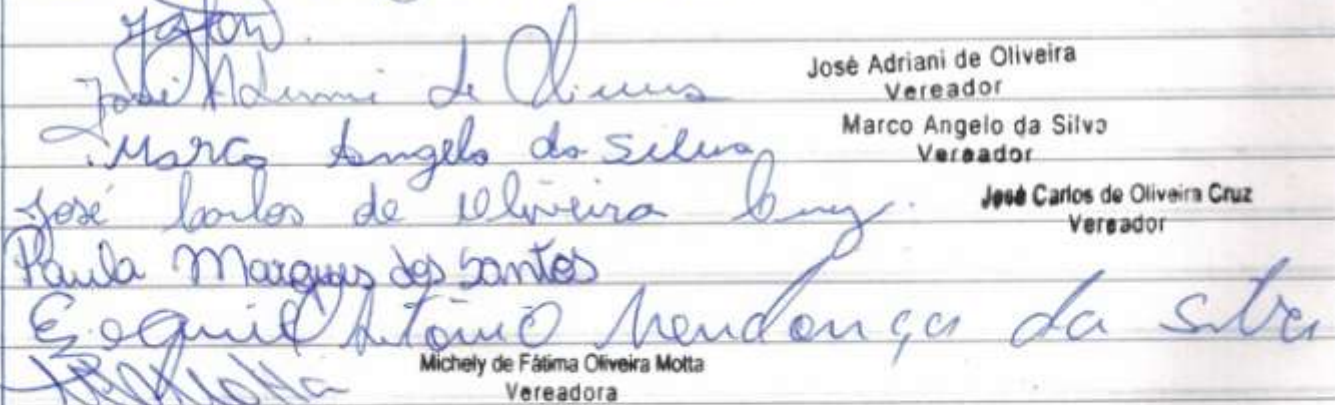 José Adriani de Oliveira José Adriani de Oliveira
Vereador
Marco Angelo da Silva Marco Angelo da Silva
Vereador
José Carlos de Oliveira Cruz. José Carlos de Oliveira Cruz
Vereador
Paula Marques dos Santos
Ezequiel Antonio Mendonça da Silva
Motta Michely de Fátima Oliveira Motta
Vereadora